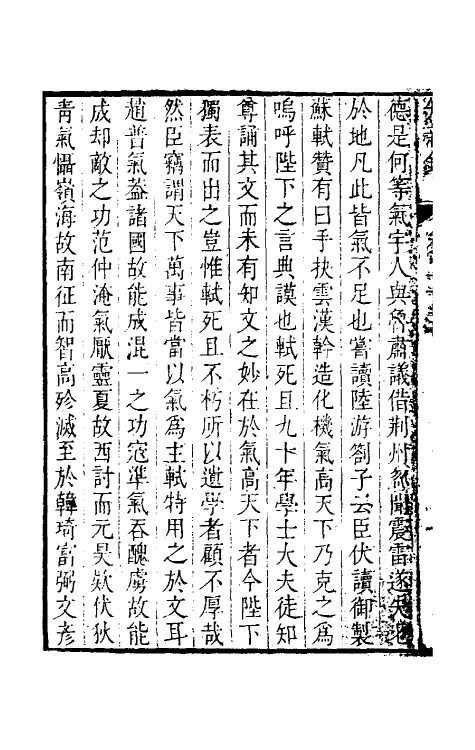 德是何等氣宇人與魯肅議借荆州忽聞震雷遂失
於地凡此皆氣不足也嘗讀陸游劄子云臣伏讀御製
蘇軾贊有曰手抉雲漢幹造化機氣高天下乃克之爲
嗚呼陛下之言典謨也軾死且九十年學士大夫徒知
尊誦其文而未有知文之妙在於氣高天下者今陛下
獨表而出之豈惟軾死且不朽所以遺學者顧不厚哉
然臣竊謂天下萬事皆當以氣爲主軾特用之於文耳
趙普氣葢諸國故能成混一之功寇凖氣吞醜虜故能
成却敵之功范仲淹氣厭靈夏故西討而元昊欵伏狄
靑氣懾嶺海故南征而智高殄滅至於韓琦富弼文彥